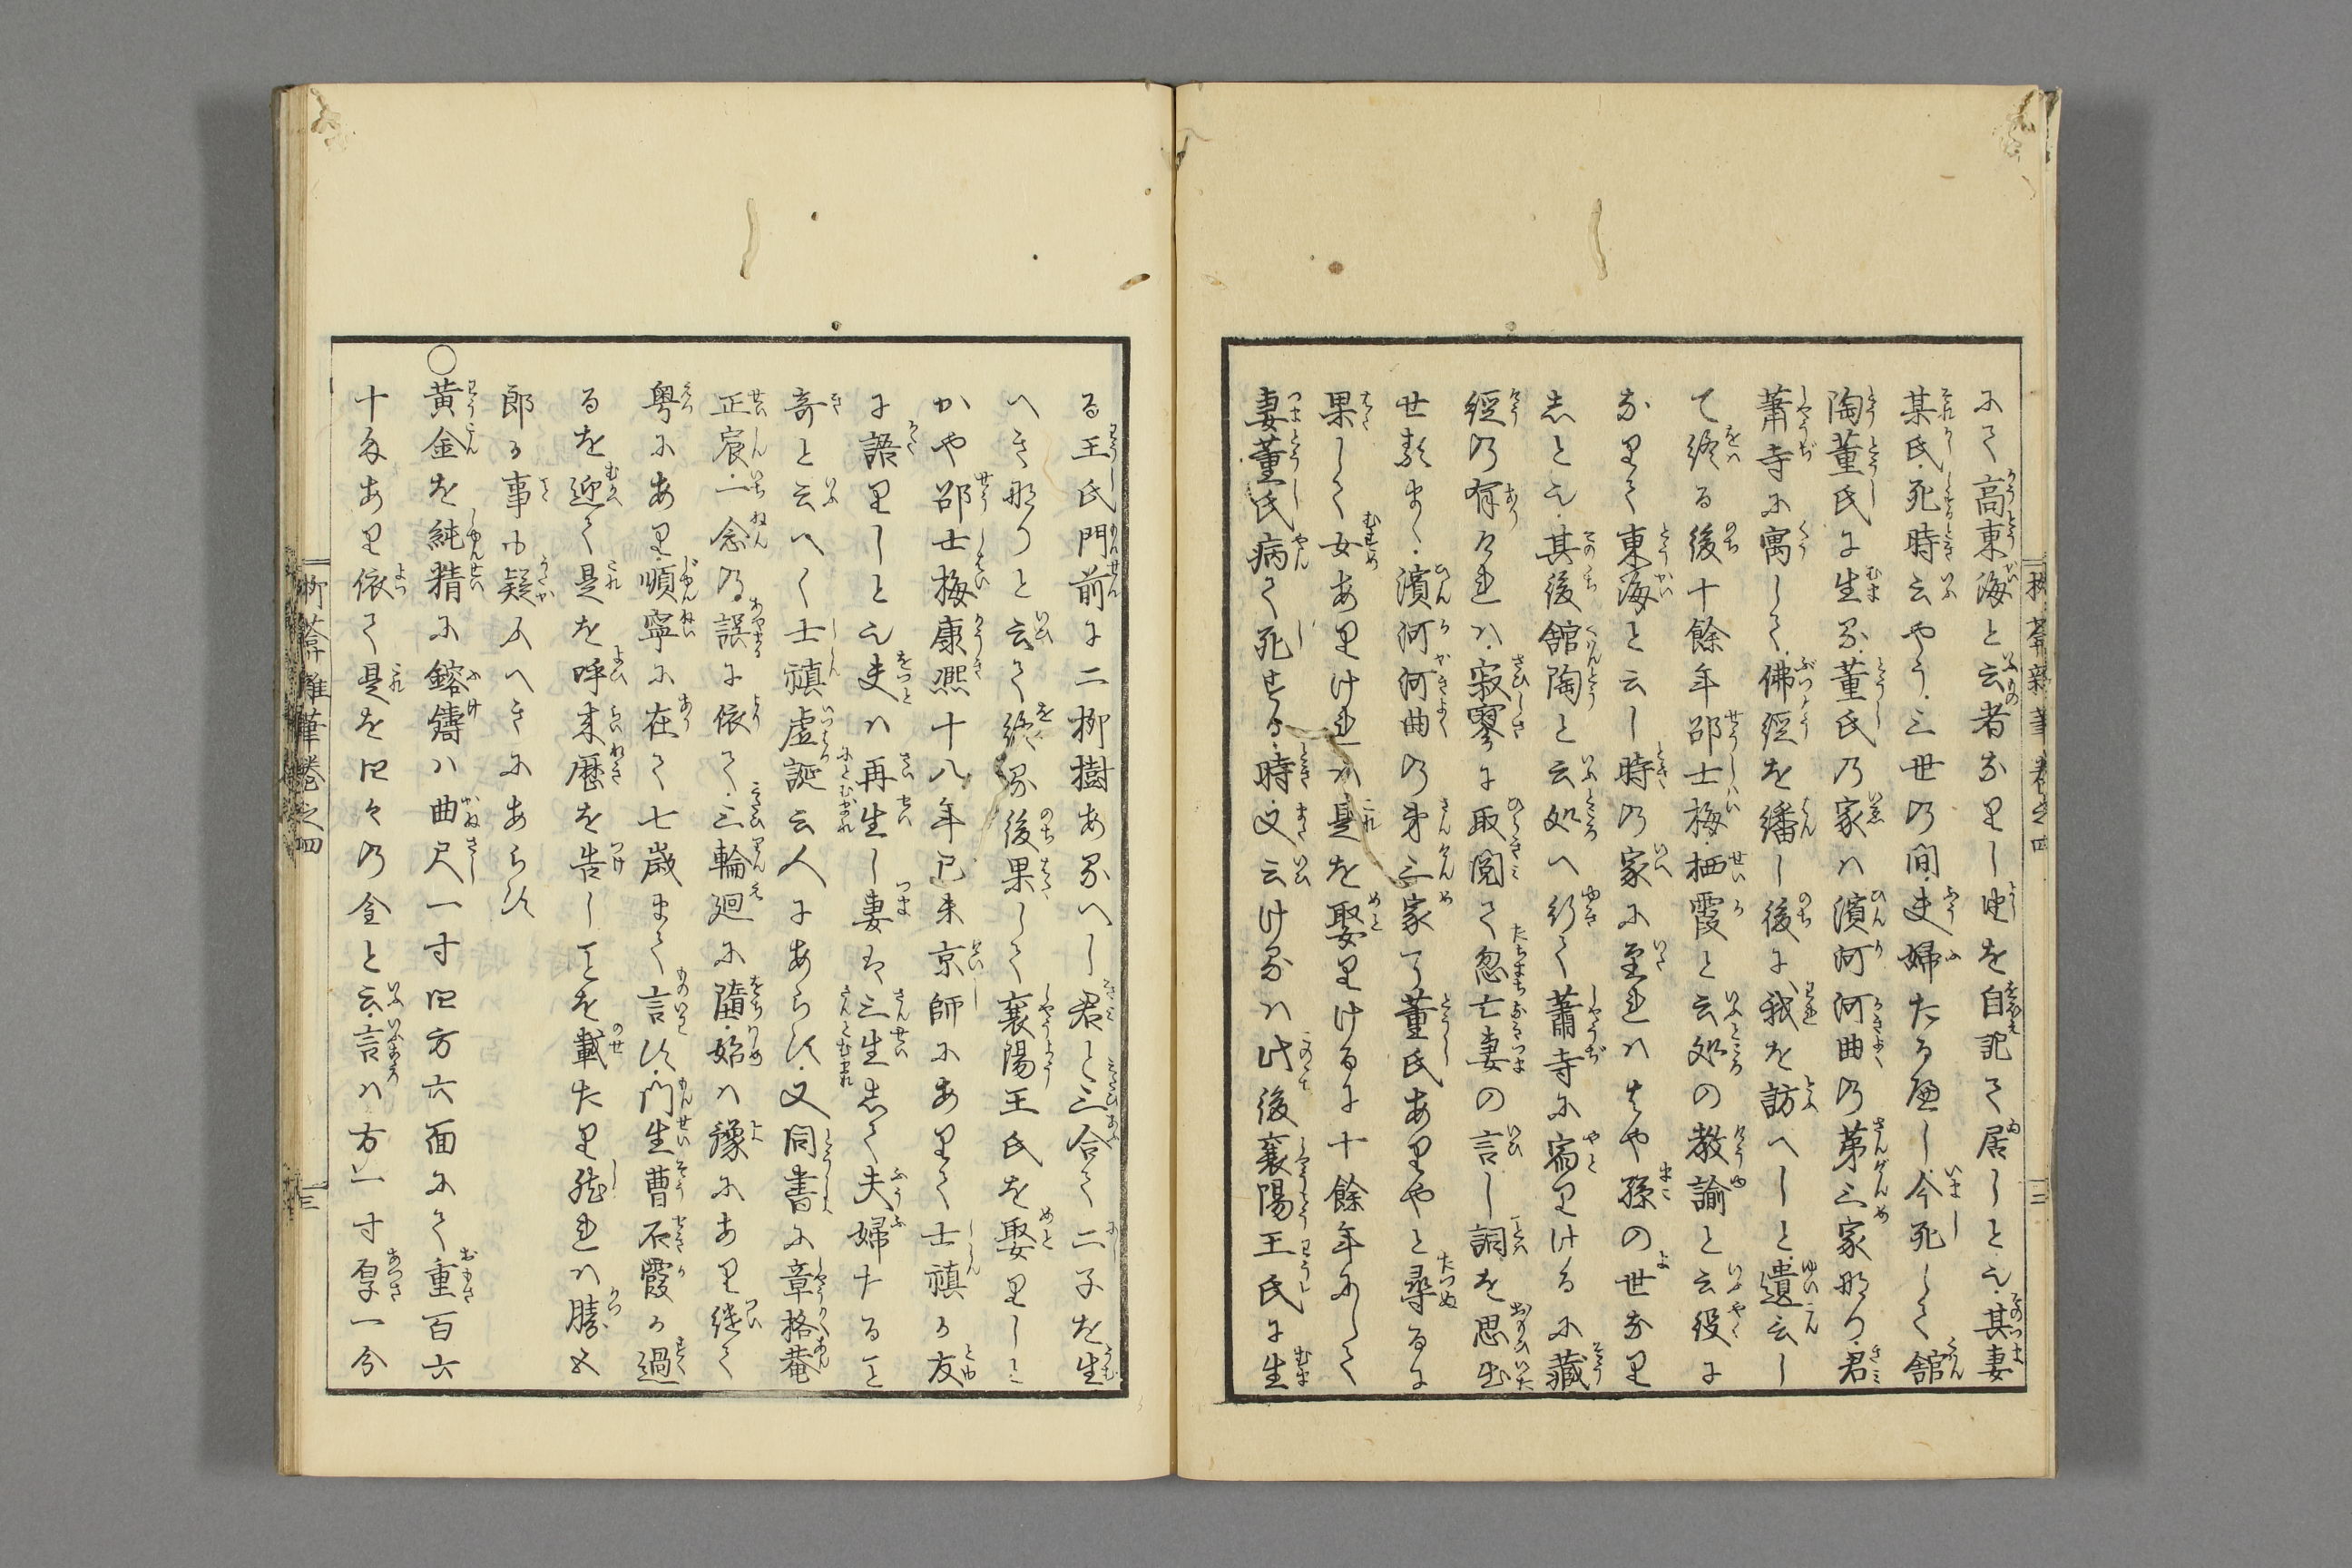 にて高東海と云者なりし由を自記て居しとぞ其妻
某氏死時云やう三世の間夫婦たるべし今死して舘
陶董氏に生る董氏の家ハ濱河河曲の第三家那り君
蕭寺に寓して佛經を繙し後に我を訪へしと遺言し
て終る後十餘年邵士梅栖霞と云処の教諭と云役に
なりて東海と云し時の家に至れハはや孫の世なり
しとぞ其後舘陶と云処へ行て蕭寺に宿りけるに藏
經の有けれハ寂寥に取閲て忽亡妻の言し詞を思出
世数まて濱河河曲の第三家に董氏ありやと尋るに
果して女ありけれハ是を娶りけるに十餘年にして
妻董氏病て死せる時又云けるハ此後襄陽王氏に生
る王氏門前に二栁樹あるへし君と三合て二子を生
へき那りと云て終る後果して襄陽王氏を娶りしと
かや邵士梅康熈十八年己未京師にありて士禛の友
に語りしとぞ夫ハ再生し妻は三生して夫婦たるこ
奇と云へく士禛虚誕云人にあらす又同書に章格菴
正宸一念の誤に依て三輪廻に墮始ハ豫にあり継て
粤にあり順寧に在て七歳まて言す門生曹石霞の過
るを迎て是を呼来歴を告しことを載たり然れハ勝五
郎の事も疑ふへきにあらす
○黄金を純精に鎔鑄ハ曲尺一寸四方六面にて重百六
十匁あり依て是を四々の金と云言ハ方一寸厚一分
栁葊雜筆巻之四
三